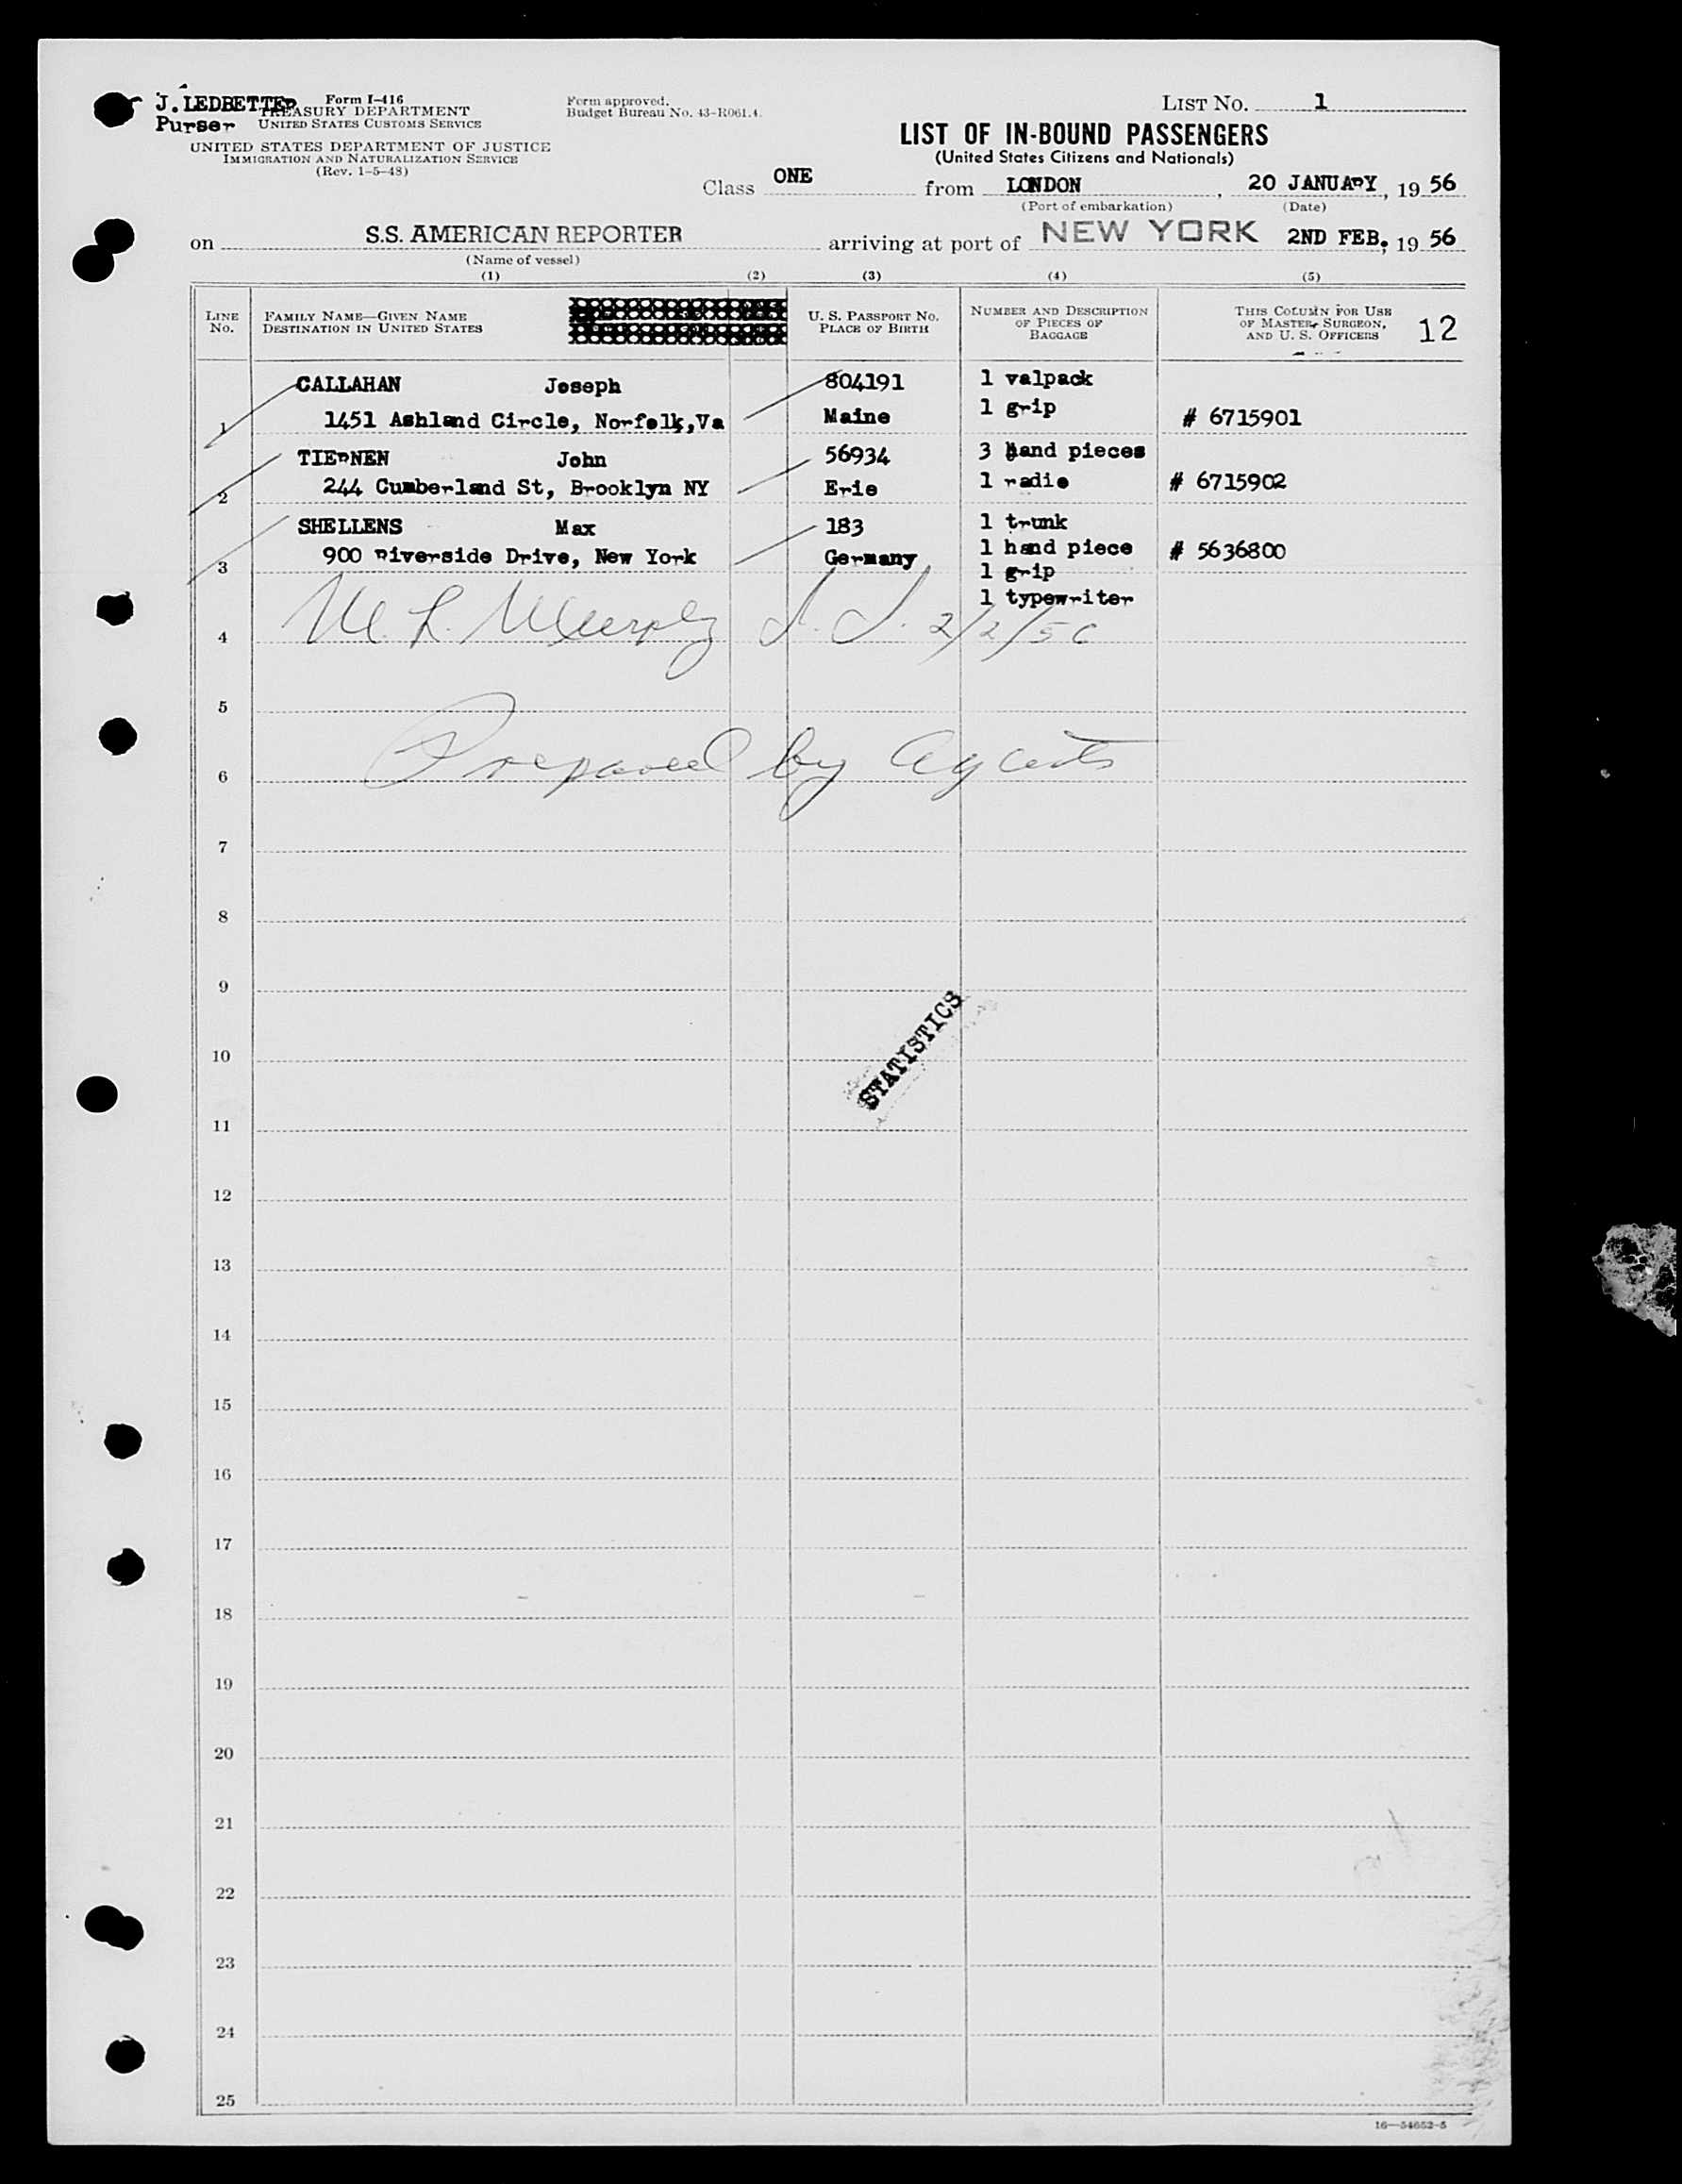 J. LEDBETTER Form I-416
TREASURY DEPARTMENT
Purser UNITED STATES CUSTOMS SERVICE
UNITED STATES DEPARTMENT OF JUSTICE
IMMIGRATION AND NATURALIZATION SERVICE
(Rev. 1-5-48)
Form approved.
Budget Bureau No. 43-R061.4.
LIST No. 1
LIST OF IN-BOUND PASSENGERS
(United States Citizens and Nationals)
Class ONE from LONDON, 20 JANUARY, 19 56
(Port of embarkation) (Date)
on S.S. AMERICAN REPORTER arriving at port of NEW YORK 2ND FEB, 19 56
(Name of vessel)
(1) (2) (3) (4) (5)
LINE No.
FAMILY NAME—GIVEN NAME
DESTINATION IN UNITED STATES
U. S. PASSPORT NO.
PLACE OF BIRTH
NUMBER AND DESCRIPTION
OF PIECES OF
BAGGAGE
THIS COLUMN FOR USE
OF MASTER, SURGEON,
AND U. S. OFFICERS
12
CALLAHAN Joseph 804191 1 valpack
1 1451 Ashland Circle, Norfolk,Va Maine 1 grip # 6715901
TIERNEN John 56934 3 hand pieces
2 244 Cumberland St, Brooklyn NY Erie 1 radio # 6715902
SHELLENS Max 183 1 trunk
3 900 Riverside Drive, New York Germany 1 hand piece # 5636800
1 grip
1 typewriter
4 M. L. Murphy 2/2/56
5
6 Prepared by agents
7
8
9
STATISTICS
10
11
12
13
14
15
16
17
18
19
20
21
22
23
24
25
16—54652-5